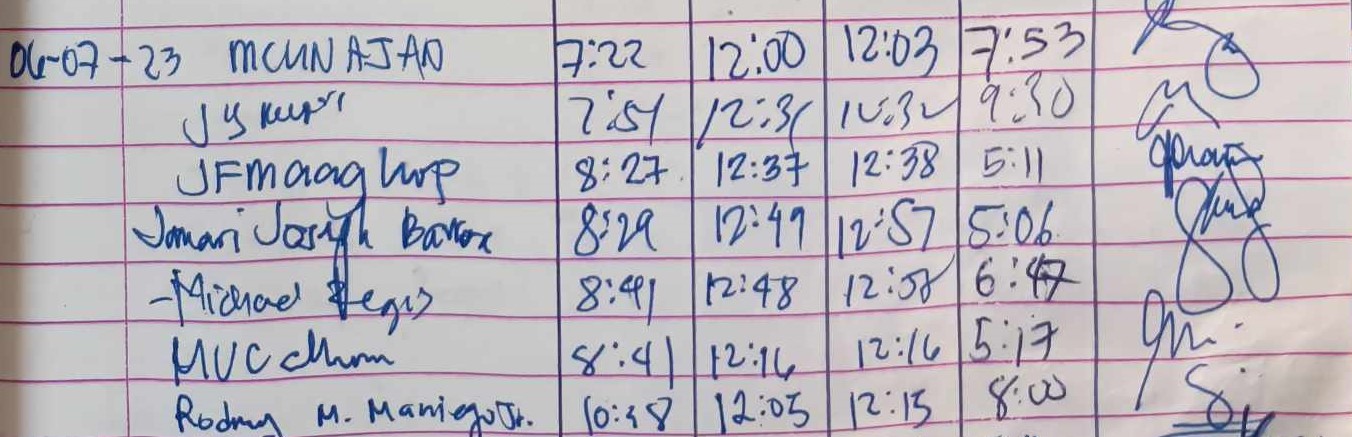 06-07-23 MCUNAJAN 7:22 12:00 12:03 7:53
7:51 12:31 12:32 9:30
JFmaaghop 8:27 12:37 12:38 5:11
Jomari Joseph 8:29 12:49 12:57 5:06
-Michael Regis 8:41 12:48 12:58 6:47
MUC 8:41 12:16 12:16 5:17
Rodney M. Maniego Jr. 10:48 12:05 12:15 8:00